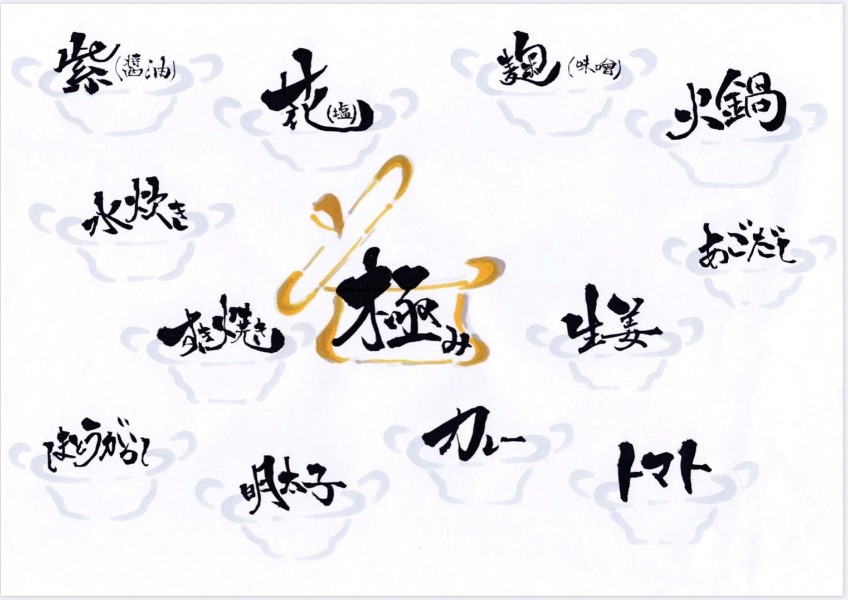 紫(醤油)
花(塩)
麹(味噌)
火鍋
水炊き
あごだし
極み
すき焼き
生姜
ほとうがらし
カレー
明太子
トマト